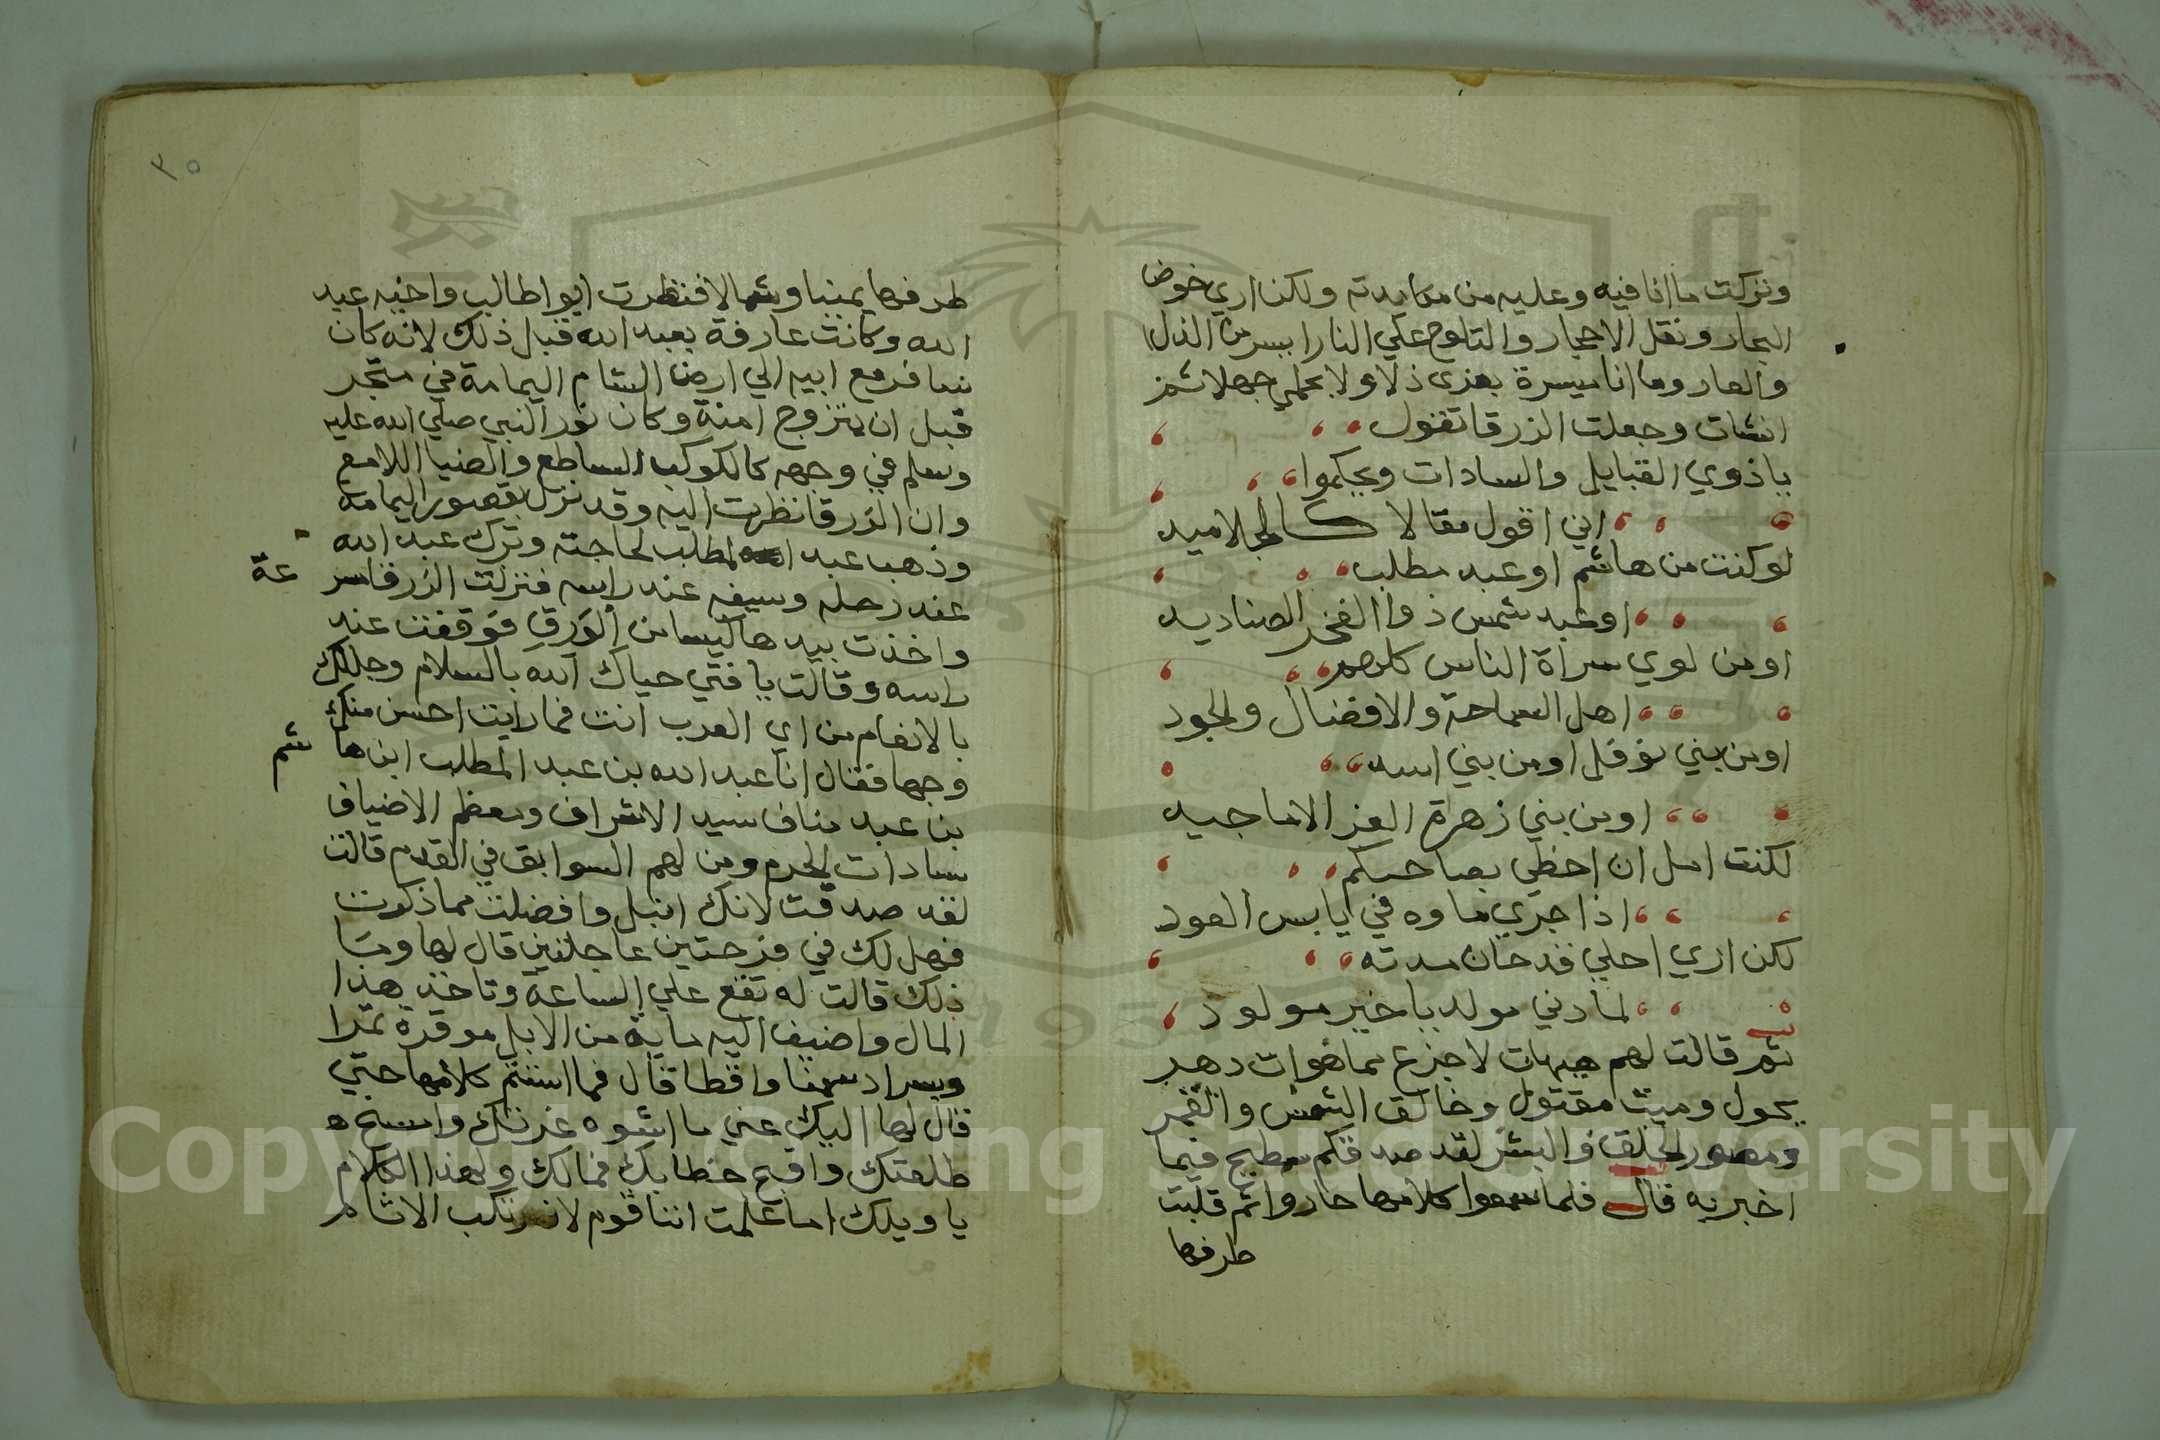 وتركت ما انا فيه وعليه من مكايدته ولكن اري خوض
البحار ونقل الاحجار والتلوح علي النار ايسر من الذل
والعار وما انا ميسرة بعزي ذلا ولا بحلمي جهلا ثم
انشات وجعلت الزرقا تقول
يا ذوي القبايل والسادات ويحكموا
اني اقول مقالا كالجلاميد
لو كنت من هاشم او عبد مطلب
او عبد شمس ذوا الفخر الصناديد
او من لوي سراة الناس كلهم
اهل السماحة والافضال والجود
او من بني نوفل او من بني اسد
او من بني زهرة الغر الاماجيد
لكنت امل ان احظي بصاحبكم
اذا جري ماوه في يابس العود
لكن اري اجلي قد حان مدته
لما دني مولد يا خير مولود
ثم قالت لهم هيهات لا جزع مما هوات دهر
يحول وميت مقتول وخالق الشمس والقمر
ومصور الخلق والبشر لقد صدقكم سطيح فيما
اخبر به قال فلما سمعوا كلامها حاروا ثم قلبت
طرفها
٣٥
طرفها يمينا وشمالا فنظرت ابوا طالب واخيه عبد
الله وكانت عارفة بعبد الله قبل ذلك لانه كان
سافر مع ابيه الي ارض الشام اليمامة في متجر
قبل ان يتزوج امنة وكان نور النبي صلي الله عليه
وسلم في وجهه كالكوكب الساطع والضيا اللامع
وان الزرقا نظرت اليه وقد نزل بقصور اليمامه
وذهب عبد المطلب لحاجته وترك عبد الله
عند رحله وسيفه عند راسه فنزلت الزرقا مسر عة
واخذت بيدها كيسا من الورق فوقفت عند
راسه وقالت يا فتي حياك الله بالسلام وجللك
بالانعام من اي العرب انت فما رايت احسن منك
وجها فقال انا عبد الله بن عبد المطلب ابن ها شم
بن عبد مناف سيد الاشراف ومعظم الاضياف
سادات الحرم ومن لهم السوابق في القدم قالت
لقد صدقت لانك انبل وافضلت مما ذكرت
فهل لك في فرحتين عاجلتين قال لها وما
ذلك قالت له تقع علي الساعة وتاخذ هذا
المال واضيف اليه ماية من الابل موقرة تمرا
وبسرا وسمنا واقطا قال فما استتم كلامها حتي
قال لها اليك عني ما اشوه غرتك واسمج ه
طلعتك واقبح خطابك فمالك ولهذا الكلام
يا ويلك اما علمت اننا قوم لا نرتكب الاثام